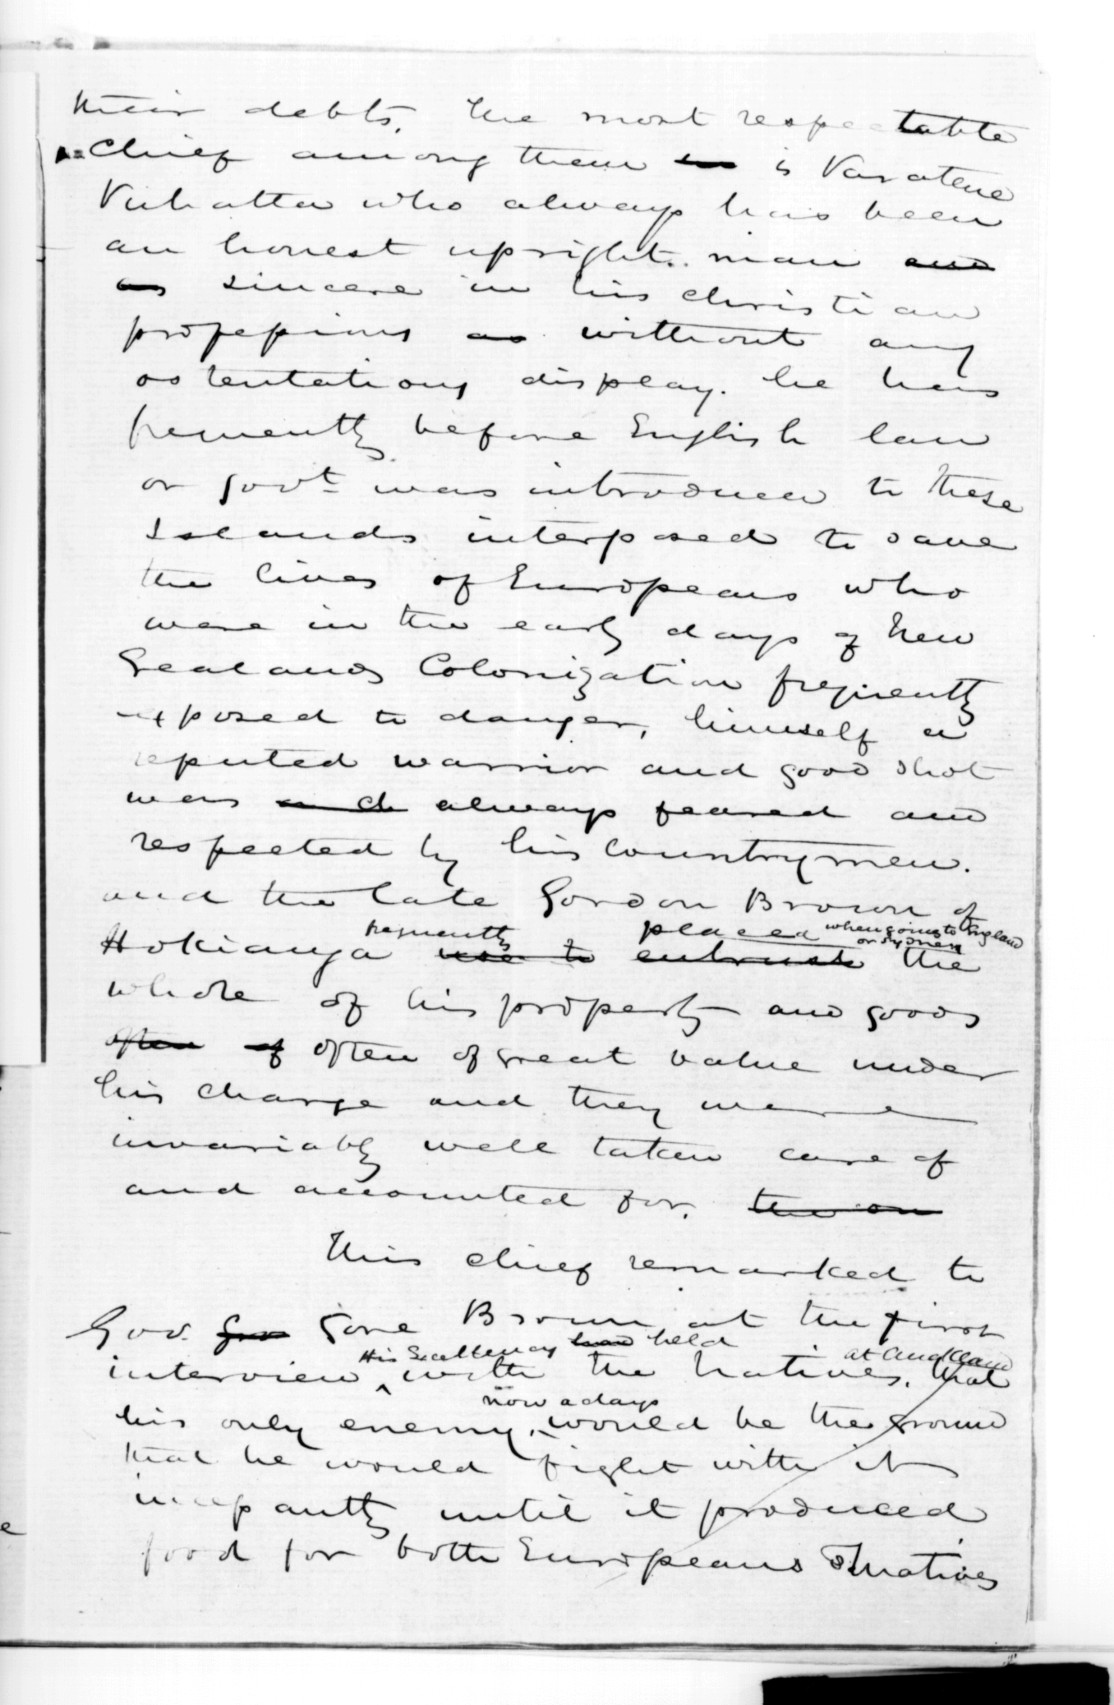 their debts. The most respectable
Chief among them is Varatene
Vuhatta who always has been
an honest upright man and
as sincere in his christian
professions as without any
ostentatious display. he has
frequently before English law
or Govt was introduced to these
Islands interposed to save
the lives of Europeans who
were in the early days of New
Zealands Colonization frequently
exposed to danger, himself a
reputed warrior and good shot
was and always feared and
respected by his countrymen.
and the late Gordon Brown of
frequently placed when going to England
or Sydney
Hokianga use to entrust the
whole of his property and goods
often of often of great value under
his charge and they were
invariably well taken care of
and accounted for. the on
This chief remarked to
Gov. Gore Brown at the first
His Excellency had held at Auckland
interview with the Natives, that
now a days
his only enemy, would be the ground
that he would fight with it
incessantly until it produced
food for both Europeans & natives